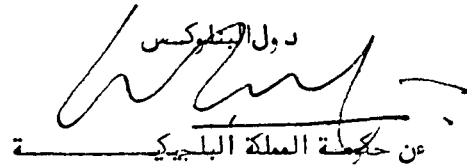 دول البنلوكس
عن حكومة المملكة البلجيكية